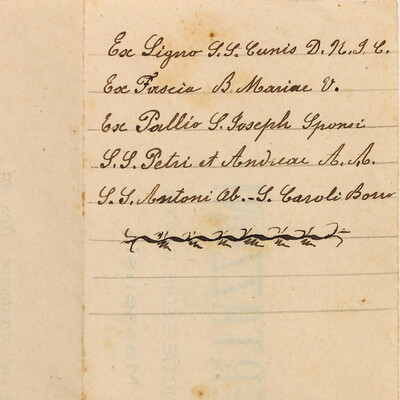 Ex Ligno S.S. Cunis D. N. J. C.
Ex Fascia B. Mariae V.
Ex Pallio S. Joseph Sponsi
S.S. Petri et Andreae A. A.
S.S. Antoni Ab. - S. Caroli Borro